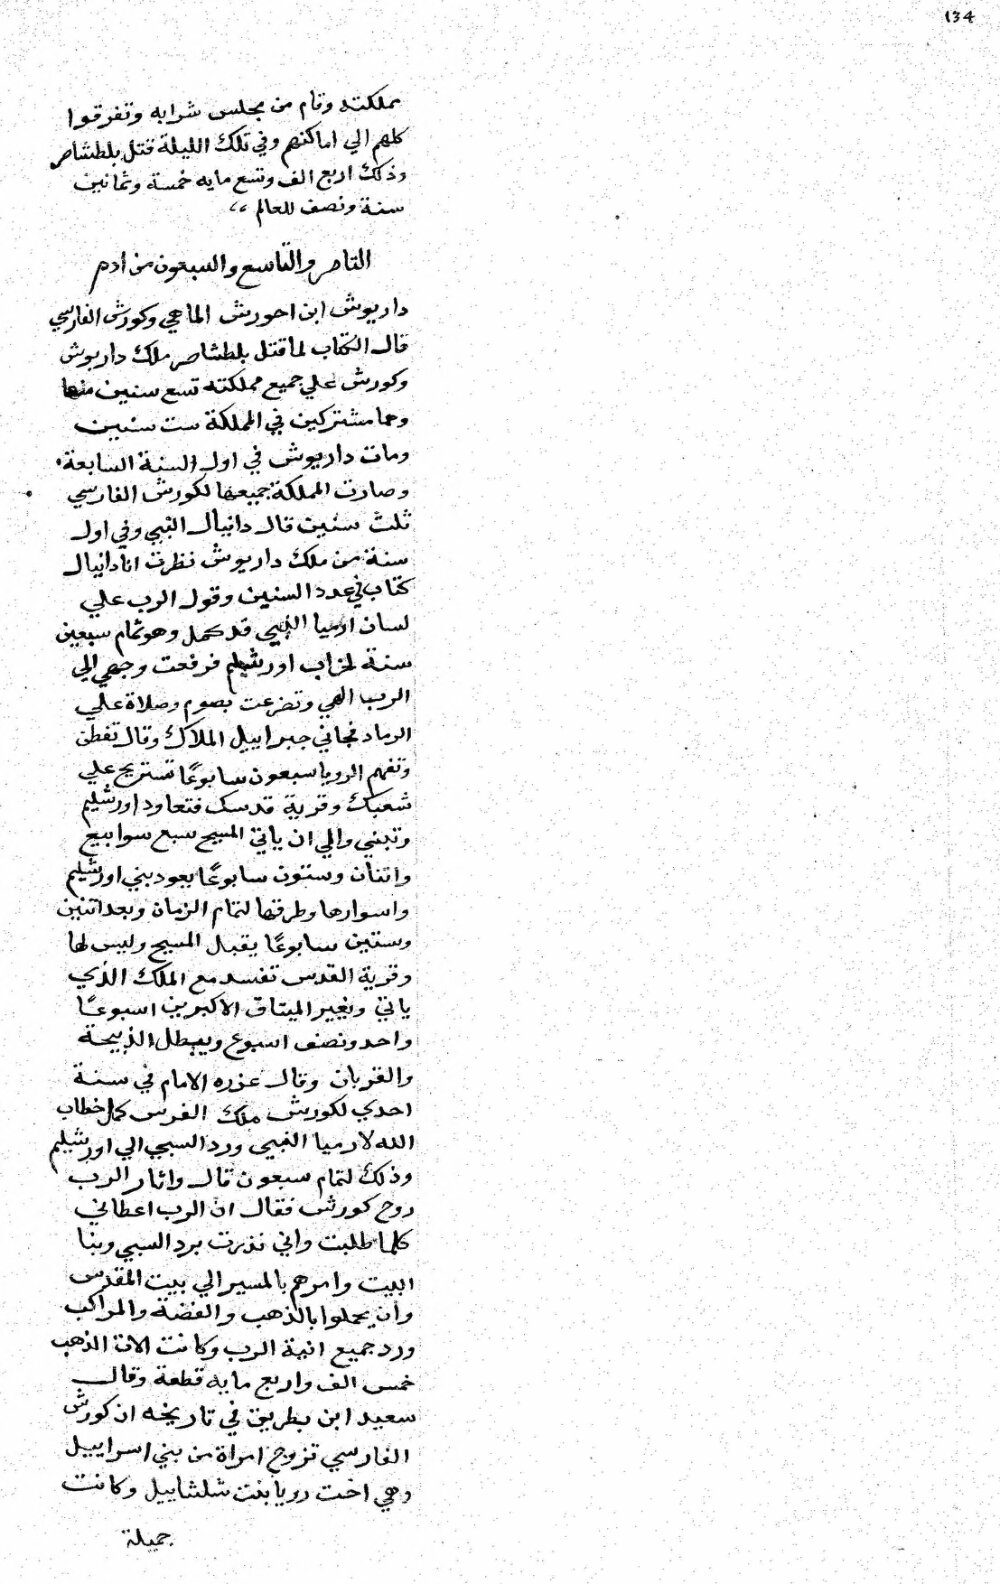 134
مملكته وقام من مجلس شرابه وتفرقوا
كلهم الي اماكنهم وفي تلك الليلة قتل بلطشاصر
وذلك اربع الف وتسع مايه خمسة وثمانين
سنة ونصف للعالم ،،
الثامن والتاسع والسبعون من ادم
داريوش ابن احورش الماهي وكورش الفارسي
قال الكتاب لما قتل بلطشاصر ملك داريوش
وكورش علي جميع مملكته تسع سنين منها
وهما مشتركين في المملكة ست سنين
ومات داريوش في اول السنة السابعة.
وصارت المملكة جميعها لكورش الفارسي
ثلث سنين قال دانيال النبي وفي اول
سنة من ملك داريوش نظرت انا دانيال
كتاب في عدد السنين وقول الرب علي
لسان ارميا النبي قد كمل وهو تمام سبعين
سنة لخراب اورشليم فرفعت وجهي الي
الرب الهي وتضرعت بصوم وصلاة علي
الرماد فجاني جبراييل الملاك وقال تفطن
وتفهم الرويا سبعون سابوعًا تستريح علي
شعبك وقرية قدسك فتعاود اورشليم
وتبني والي ان ياتي المسيح سبع سوابيع
واثنان وستون سابوعًا يعود يبني اورشليم
واسوارها وطرقها لتمام الزمان وبعد اتنين
وستين سابوعًا يقبل المسيح وليس لها
وقرية القدس تفسد مع الملك الذي
ياتي ويغير الميتاق الاكبرين اسبوعًا
واحد ونصف اسبوع ويبطل الذبيحة
والقربان وقال عزره الامام في سنة
احدي لكورش ملك الفرس كمل خطاب
الله لارميا النبي ورد السبي الي اورشليم
وذلك لتمام سبعون قال واثار الرب
روح كورش فقال ان الرب اعطاني
كلما طلبت واني نذرت برد السبي وبنا
البيت وامرهم بالمسير الي بيت المقدس
وان يحملوا بالذهب والفضة والمراكب
ورد جميع انية الرب وكانت الات الذهب
خمس الف واربع مايه قطعة وقال
سعيد ابن بطريق في تاريخه ان كورش
الفارسي تزوج امراة من بني اسراييل
وهي اخت رويا بنت شلشاييل وكانت
جميلة